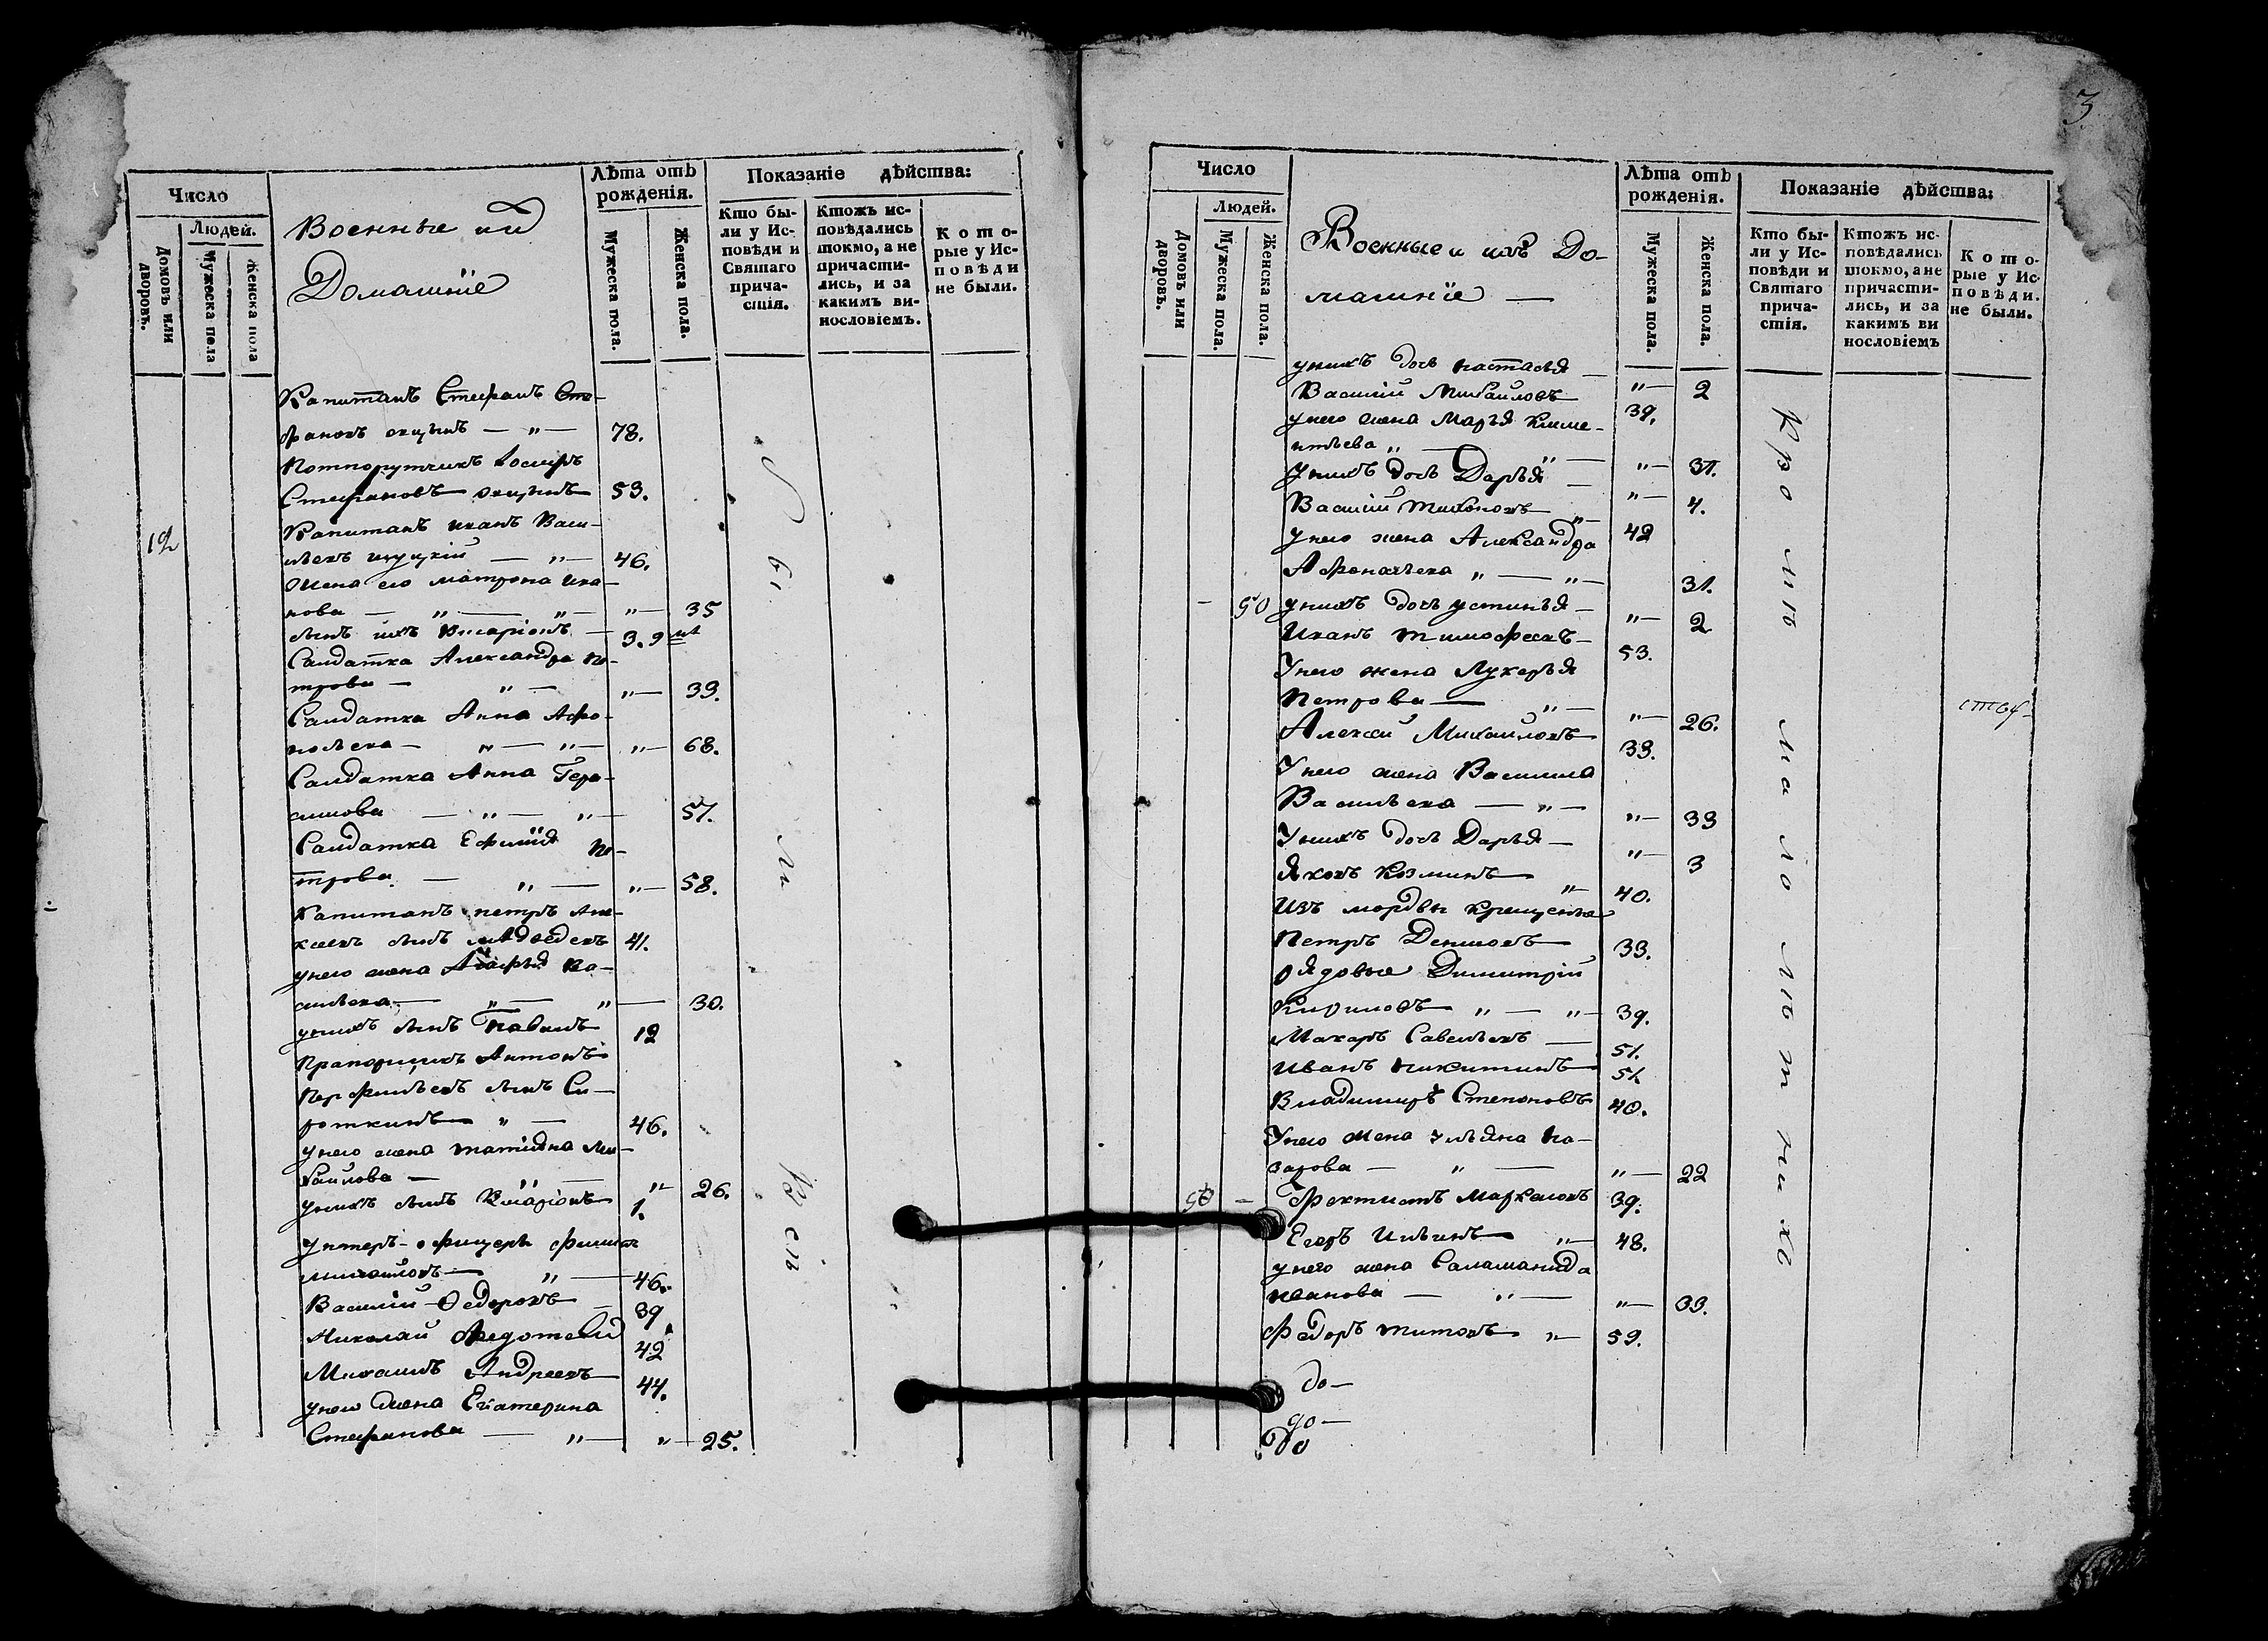 Число
Людей.
Домовъ или дворовъ.
Мужеска пола
Женска пола
Военные ид
Домашніе
Лѣта отъ рожденія.
Мужеска пола.
Женска пола.
Показаніе дѣйства:
Кто бы-
ли у Ис-
повѣди и
Святаго
прича-
стія.
Ктожъ ис-
повѣдались
токмо, а не
причасти-
лись, и за
какимъ ви-
нословіемъ.
Кото-
рые у Ис-
повѣди
не были.
Капитанъ Стефанъ Сте-
фановъ — „ — 78.
Стефановъ 53.
Капитанъ иванъ Васи-
льевъ — „ — 46.
жена его матрона ива-
нова — „ — „ — „ — 35
сынъ ихъ — 3.9
Салдатка Александра пе-
трова — „ — „ — 39.
Салдатка Анна Афо-
насьева — „ — „ — „ — 68.
Салдатка Анна Гера-
симова — „ — „ — 57.
Салдатка Ефимія пе-
трова — „ — „ — 58.
Капитанъ петръ Але-
ксеевъ сынъ медведевъ 41.
унего жена Агафья ва-
сильева — „ — „ — 30.
унихъ сынъ Павелъ 12
Прапорщикъ Антонъ
Перфильевъ сынъ Си-
роткинъ „ — 46.
унего жена татіяна Ми-
хайлова — „ — „ 26.
унихъ сынъ 1.
Унтеръ-офицеры филипъ
михайловъ — „ — 46.
Василій Федоровъ — 39
Николай Федотовъ 42
Михаилъ Андреевъ 44.
унего жена Екатерина
Стефанова — „ — „ — 25.
Бы
ли
Всѣ
3
Число
Людей.
Домовъ или дворовъ.
Мужеска пола.
Женска пола.
Военные и ихъ До-
машніе —
Лѣта отъ рожденія.
Мужеска пола.
Женска пола.
Показаніе дѣйства:
Кто бы-
ли у Ис-
повѣди и
Святаго
прича-
стія.
Ктожъ ис-
повѣдались
токмо, а не
причасти-
лись, и за
какимъ ви
нословіемъ
Кото-
рые у Ис-
повѣди.
не были.
унихъ дочь настасья — „ — 2
Василій Михайловъ 39.
унего жена Марья Климе-
нтьева „ — „ — „ — 31.
Унихъ дочь Дарья — „ — 4.
Василій Тихоновъ „ — 42
Унего жена Александра
Афонасьева „ — „ — 31.
50 унихъ дочь устинья — „ — 2
Иванъ тимофеевъ — 53.
Унего жена Лукерья
Петрова — „ — „ — 26.
Алексей Михайловъ 33.
Унего жена Василиса
Васильева — „ — „ — 33
Унихъ дочь Дарья — „ — 3
Яковъ Козминъ „ 40.
Изъ мордвы крещеные
Петръ Денисовъ 33.
рядовые Димитрій
Кириловъ „ — „ — 39.
Макаръ Савельевъ — 51.
Иванъ никитинъ 51.
Владимиръ Степановъ 40.
Унего жена ульяна на-
зарова — „ — „ — 22
Фектистъ Маркеловъ 39.
Егоръ Ильинъ „ — 48.
унего жена Саламанида
иванова — „ — „ — 33.
Федоръ титовъ „ — 59.
до —
до —
До
Кромѣ
малолѣтнихъ